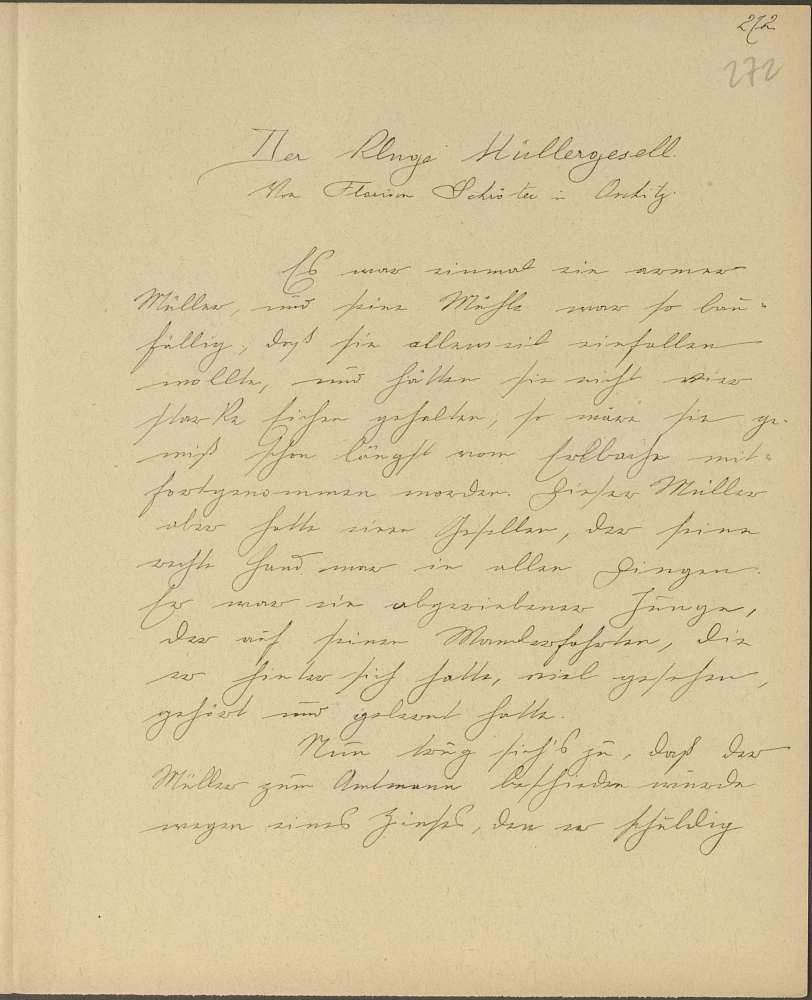 272
272
Der kluge Müllergesell.
Von Florian Schröter in
Es war einmal ein armer
Müller, und seine Mühle war so bau-
fällig, daß sie alleweil einfallen
wollte, und hätten sie nicht vier
starke Eichen gehalten, so wäre sie ge-
wiß schon längst vom Erlbache mit-
fortgenommen worden. Dieser Müller
aber hatte einen Gesellen, der seine
rechte Hand war in allen Dingen.
Er war ein abgeriebener Junge,
der auf seinen Wanderfahrten, die
er hinter sich hatte, viel gesehen,
gehört und gelernt hatte.
Nun trug sich's zu, daß der
Müller zum Amtmann beschieden wurde
wegen eines Zinses, den er schuldig